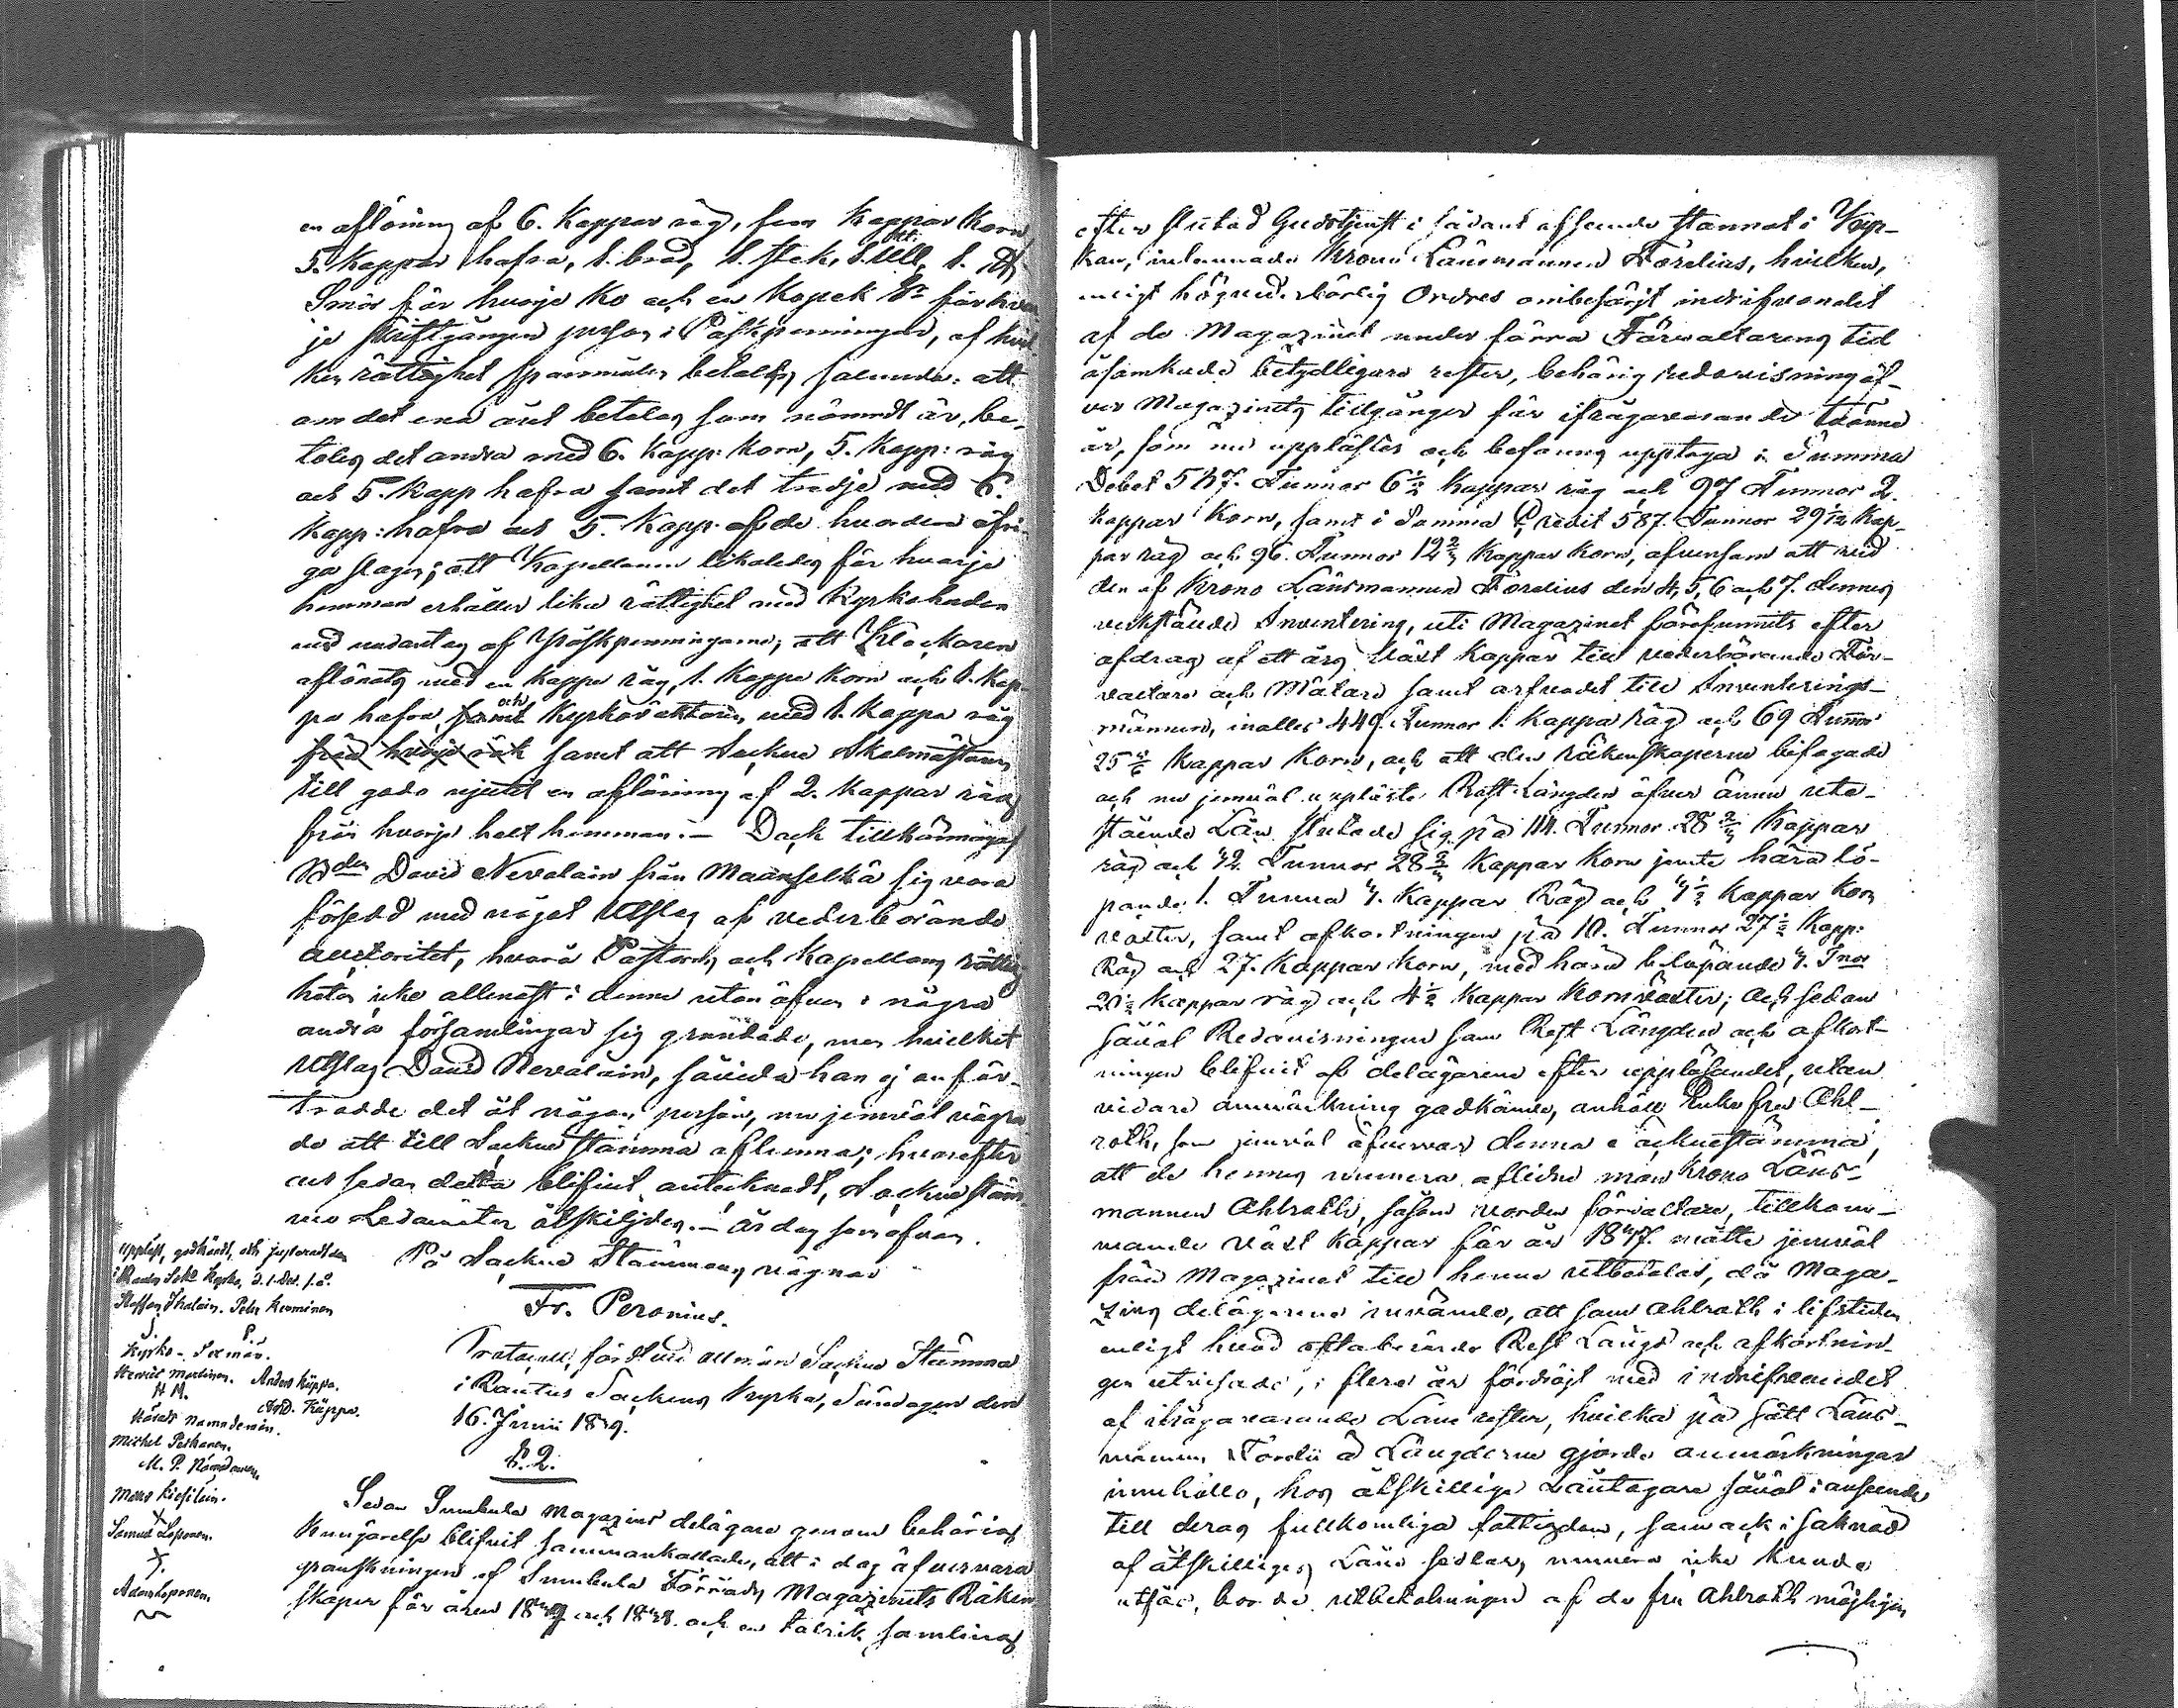 en aflöning af 6. Kappar råg, fem Kappar Korn
5. Kappar hafra, 1. bröd, 1. stek, 1. ull, 1.
Smör för hvarje Ko och en Kopek Sr för hvar
je skriftgången person i Påskpenningar, af hvil
ken rättighet spannmålen betaltes sålunda: att
om det ena året betalas som nämndt är, be-
talas det andra med 6. Kapp: Korn, 5. Kapp: råg
och 5. Kapp hafra samt det tredje med 6.
Kapp: hafra och 5. Kapp. af de hvardera öfri-
ga slagen; att Kapellanen likaledes för hvarje
hemman erhåller lika rättighet med Kyrkoherden
med undantag af Påskpenningarne; att Klockaren
aflönats med en Kappa råg, 1. Kappa Korn och 1. Kap-
pa hafra samt och Kyrkoväktaren med 1. Kappa råg
från hvarje rök samt att Sockne Skolmästaren
till godo njutit en aflöning af 2. Kappar råg
från hvarje helt hemman. — Dock tillkännagaf
Bden David Nevalain från Maanselkä sig vara
försedd med något Utslag af vederbörande
auctoritet, hvarå Pastors och Kapellans rättig
heter icke allenast i denna utan äfven i några
andra församlingar sig grundade, men hvilket
Utslag David Nevalain, såvida han ej anför-
trodde det åt någon person, nu jemväl vägra
de att till Sockne Stämma aflemna; hvarefter
och sedan detta blifvit antecknadt, Sockne Stäm
mo Ledamöter åtskiljdes. — År dag som ofvan.
På Sockne Stämmans vägnar
Fr. Peronius.
Uppläst, godkändt, och justeradt den
i Rautus Sokne Kyrka, d. 1. Dec. s. å.
Staffan Ihalain. Peter Kerminen
Kyrko-Sexmän.
Henric Martinen. Anders Käppa.
H. M. And. Käppa.
Härads Nämndemän.
Michel Pethonen.
M. P. Nämdeman,
Mats Kiesiläin.
Samuel Loponen.
Adam Loponen.
Protocoll, fördt vid allmän Sockne Stämma
i Rautus Sockens Kyrka, Söndagen den
16. Junii 1849.
§. 2.
Sedan Sumbula Magazins delägare genom behörig
Kungörelse blifvit sammankallade, att i dag öfvervara
granskningen af Sumbula Förråds Magazinets Räken
skaper för åren 1847 och 1848. och en talrik samling
efter slutad Gudstjenst i sådant afseende stannat i Kyr-
kan, inlemnade Krono Länsmannen Förelius, hvilken,
enligt högvederbörlig Ordres ombesörjt indrifvandet
af de Magazinet under förra Förvaltarens tid
åsamkade betydligare rester, behörig redovisning öf-
ver Magazinets tillgångar för ifrågavarande tvänne
år, som nu upplästes och befanns upptaga i Summa
Debet 587. Tunnor 6½ Kappar råg och 97 Tunnor 2.
kappar Korn, samt i Summa Credit 587. Tunnor 29½ Kap-
par råg och 96. Tunnor 12⅔ Kappar Korn, äfvensom att vid
den af Krono Länsmannen Förelius den 4, 5, 6 och 7. dennes
verkställde Inventering, uti Magazinet förefunnits efter
afdrag af ett års växt kappar till vederbörande För-
valtare och Mätare samt arfvodet till Inventerings-
männen, inalles 449. Tunnor 1. Kappa Råg och 69 Tunnor
25 Kappar Korn, och att den räkenskaperne bifogade
och nu jemväl uppläste Rest Längden öfver ännu ute-
stående Lån slutade sig på 111. Tunnor 28 Kappar
råg och 12. Tunnor 28 Kappar Korn jemte härå lö-
pande 1. Tunna 4. Kappar Råg och 4½ Kappar Korn
växter, samt afkortningen på 10. Tunnor 27½ Kapp:
Råg och 27. Kappar Korn, med härå belöpande 4. Tnor
20½ Kappar råg och 4½ Kappar Kornväxter; Och sedan
såväl Redovisningen som Rest Längden och afkort-
ningen blifvit af delägarene efter uppläsandet, utan
vidare anmärkning godkände, anhöll Enke fru Ahl-
roth, som jemväl öfvervar denna Socknestämma,
att de hennes numera aflidne man Krono Läns-
mannen Ahlroth, såsom varden förvaltare, tillkom-
mande växt kappar för år 1847. måtte jemväl
från Magazinet till henne utbetalas, då Maga-
zins delägarene invände, att som Ahlroth i lifstiden
enligt hvad oftaberörde Rest Längd och afkortnin-
gen utvisade, i flere år fördröjt med indrifvandet
af ifrågavarande Låne rester, hvilka på sätt Läns-
mannen Förelii å Längderne gjorde anmärkningar
innehålla, hos åtskillige Låntagare såväl i anseende
till deras fullkomliga fattigdom, som ock i saknad
af åtskilliges Låne sedlar, numera icke kunde
utfås, borde utbekomningen af de fru Ahlroth möjligen